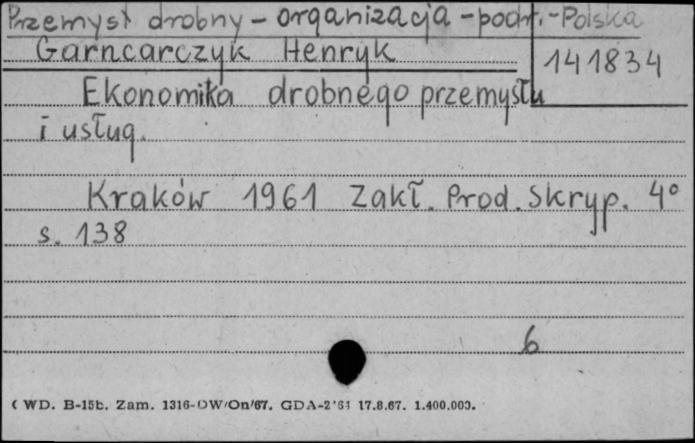 Przemysł drobny - organizacja - podr. - Polska
Garncarczyk Henryk
141834
Ekonomika drobnego przemysłu
i usług.
Kraków 1961 Zakł. Prod. Skryp. 4°
s. 138
6
WD. B-15b. Zam. 1316-DW/On/67. GDA-2 17.8.67. 1.400.000.